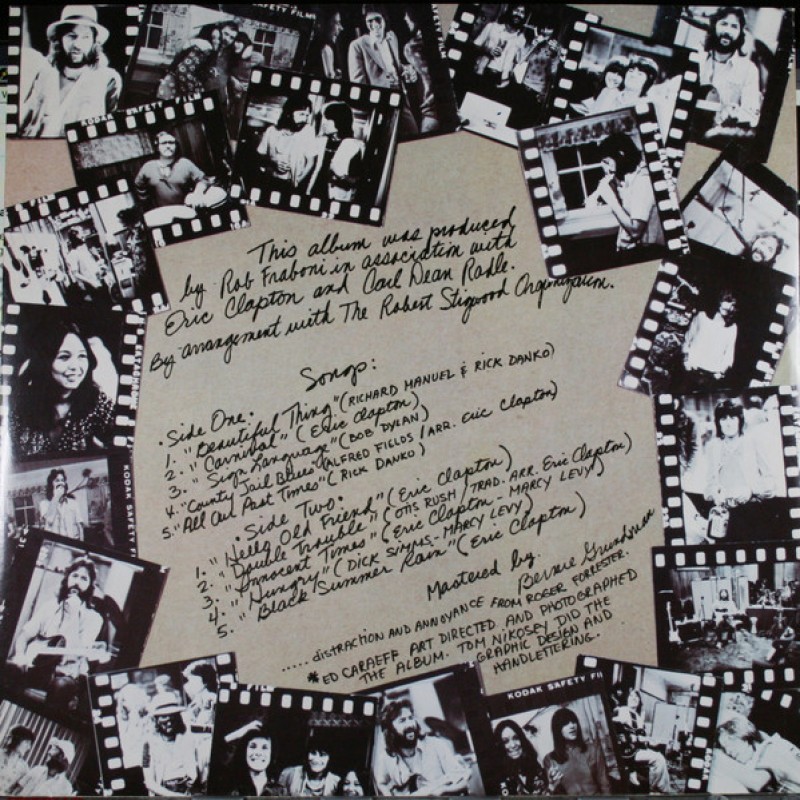 KODAK SAFETY FILM
SAFETY FILM
This album was produced
by Rob Fraboni in association with
Eric Clapton and Carl Dean Radle.
By arrangement with The Robert Stigwood Organization.
Songs:
• Side One:
1. "Beautiful Thing" (RICHARD MANUEL & RICK DANKO)
2. "Carnival" (Eric Clapton)
3. "Sign Language" (BOB DYLAN)
4. "County Jail Blues" (ALFRED FIELDS / ARR. Eric Clapton)
5. "All Our Past Times" (RICK DANKO)
• Side Two:
1. "Hello Old Friend" (Eric Clapton)
2. "Double Trouble" (OTIS RUSH / TRAD. ARR. Eric Clapton)
3. "Innocent Times" (Eric Clapton - MARCY LEVY)
4. "Hungry" (DICK SIMMS - MARCY LEVY)
5. "Black Summer Rain" (Eric Clapton)
Mastered by:
Bernie Grundman
..... distraction AND ANNOYANCE FROM ROGER FORRESTER.
*ED CARAEFF ART DIRECTED AND PHOTOGRAPHED
THE ALBUM. TOM NIKOSEY DID THE
GRAPHIC DESIGN AND
HANDLETTERING.
KODAK SAFETY FI
KODAK SAFETY FI